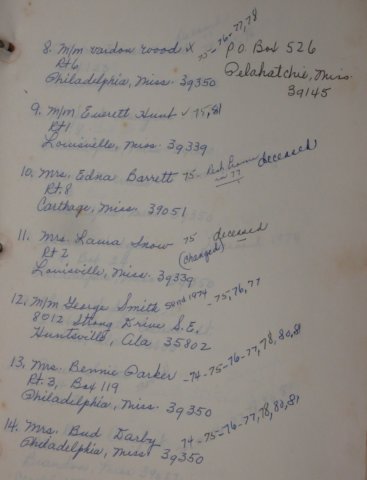 8. M/M Vaidon Wood x 75-76-77,78
Rt 6
Philadelphia, Miss. 39350
P O Box 526
Pelahatchie, Miss.
39145
9. M/M Everett Hunt ✓ 75,81
Rt 1
Louisville, Miss. 39339
10. Mrs. Edna Barrett 75- 77 deceased
Rt. 8
Carthage, Miss. 39051
11. Mrs. Laura Snow 75 deceased
Rt 2 (changed)
Louisville, Miss. 39339
12. M/M George Smith send 1974 - 75, 76, 77
8012 Strong Drive S.E.
Huntsville, Ala 35802
13. Mrs. Bennie Parker -74-75-76-77,78,80,81
Rt. 3, Box 119
Philadelphia, Miss. 39350
14. Mrs. Bud Darby 74-75-76-77,78,80,81
Philadelphia, Miss. 39350